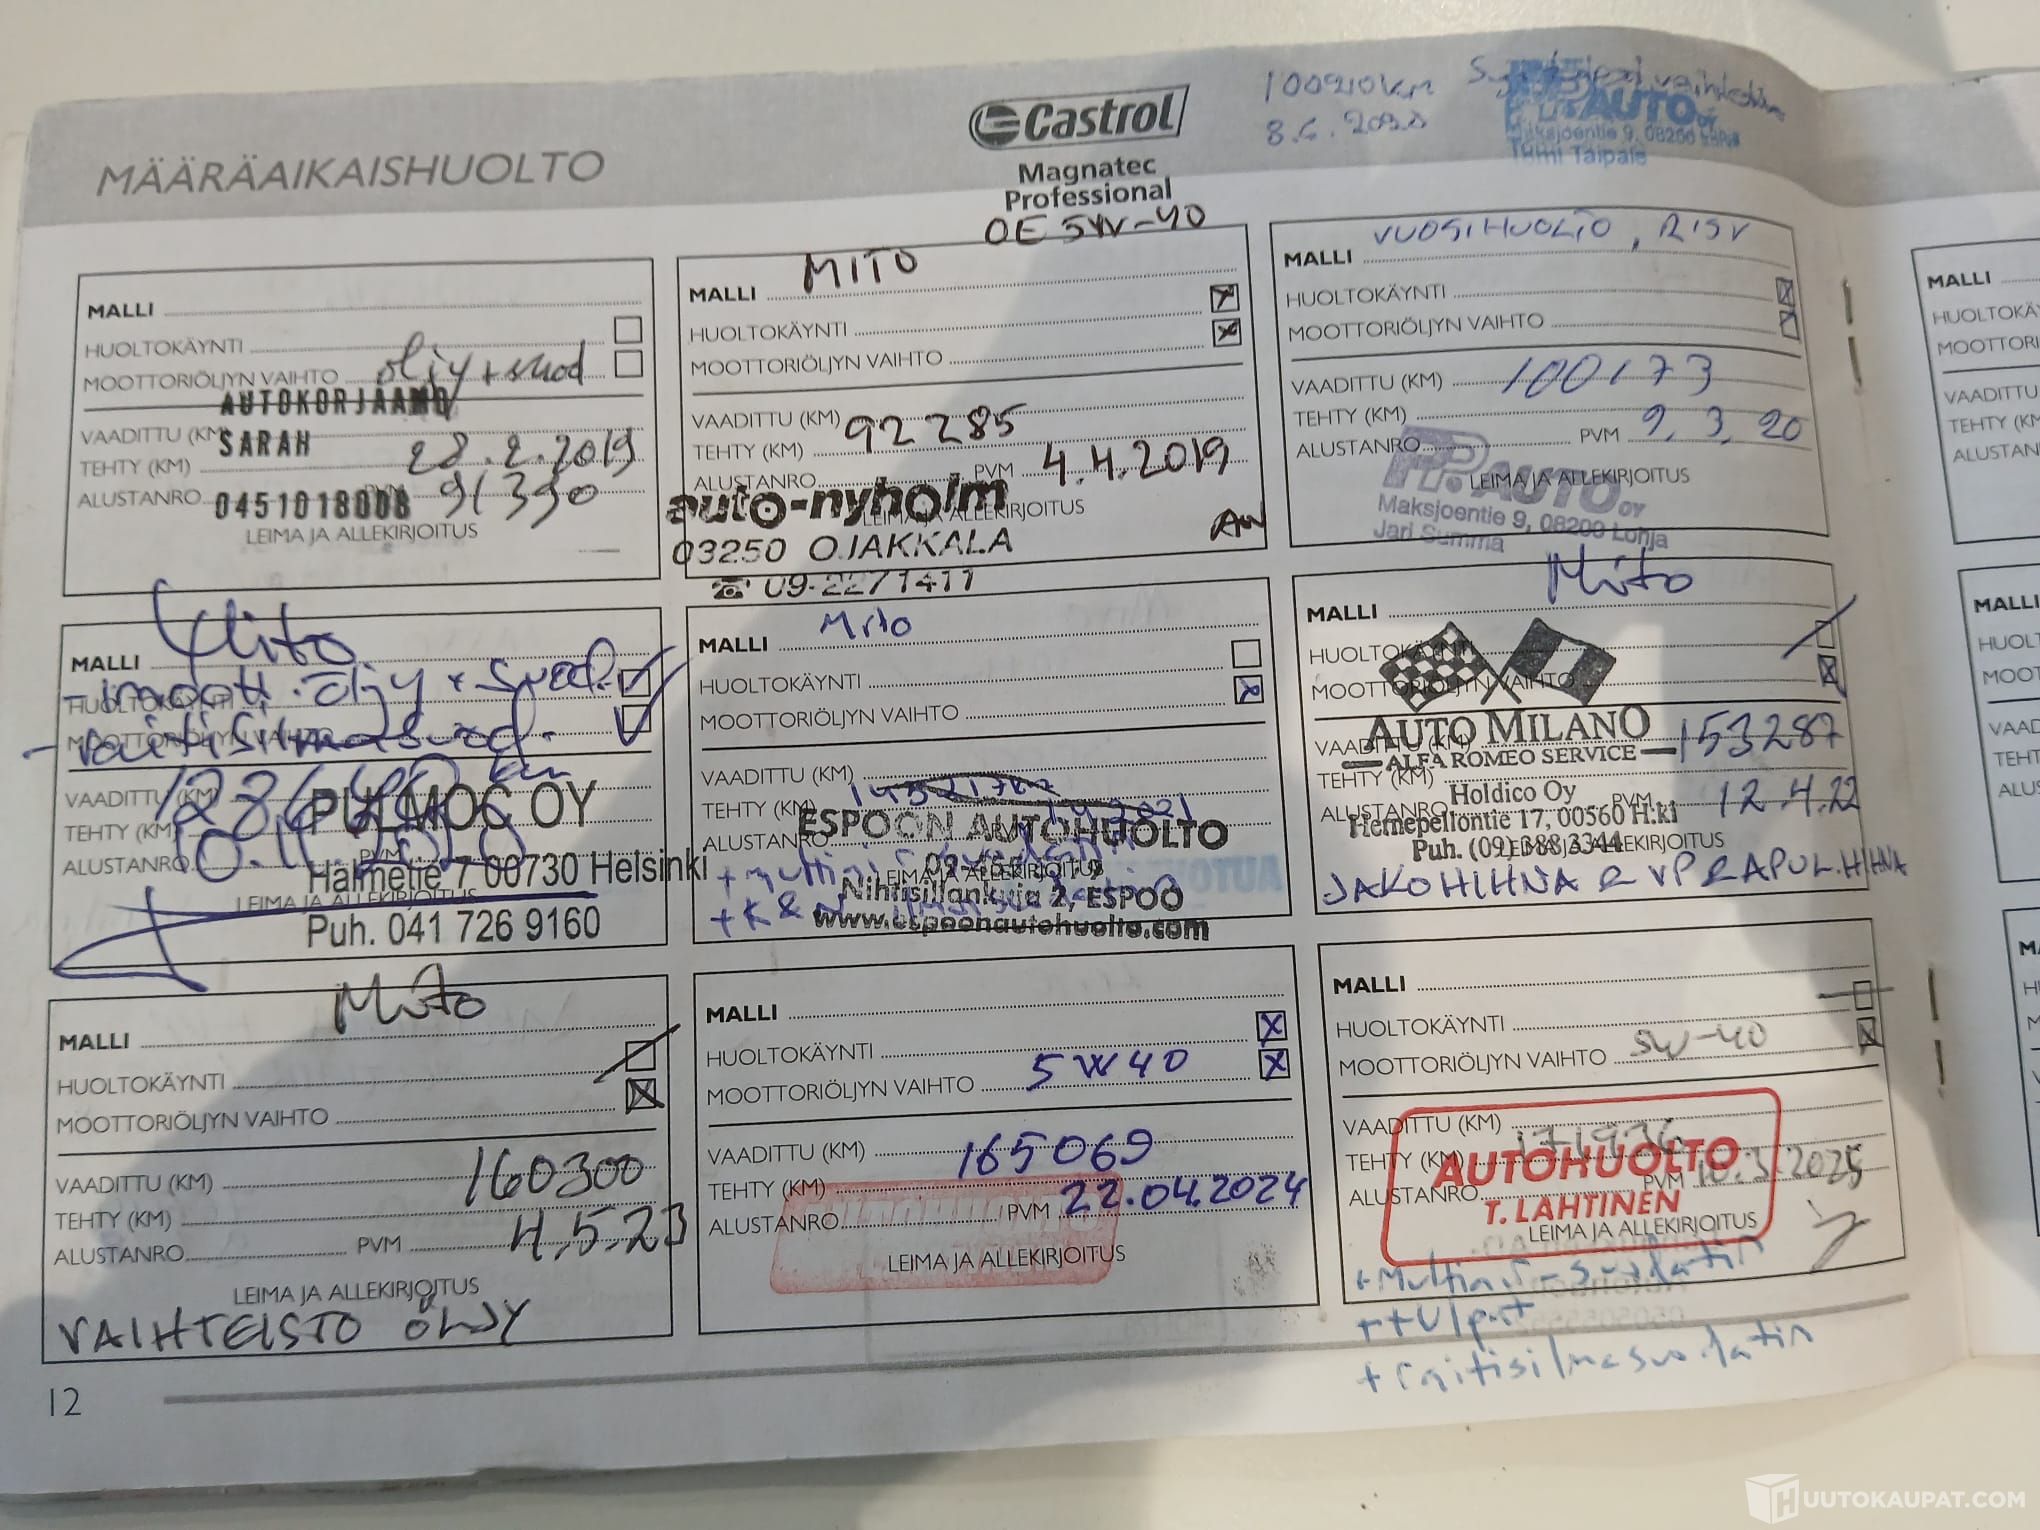 MÄÄRÄAIKAISHUOLTO
Castrol
Magnatec
Professional
OE 5W-40
100910km
8.6.2020
AUTO OY
Maksjoentie 9, 08200 Lohja
Tomi Taipale
MALLI
HUOLTOKÄYNTI
MOOTTORIÖLJYN VAIHTO öljy + suod
AUTOKORJAAMO
VAADITTU (KM)
SARAH
TEHTY (KM) 28.2.2019
ALUSTANRO 0451018008 PVM 91390
LEIMA JA ALLEKIRJOITUS
MALLI MITO
HUOLTOKÄYNTI
MOOTTORIÖLJYN VAIHTO
VAADITTU (KM) 92285
TEHTY (KM)
ALUSTANRO PVM 4.4.2019
auto-nyholm
LEIMA JA ALLEKIRJOITUS
03250 OJAKKALA
☎ 09-2271411
VUOSIHUOLTO,
MALLI
HUOLTOKÄYNTI
MOOTTORIÖLJYN VAIHTO
VAADITTU (KM) 100173
TEHTY (KM)
ALUSTANRO PVM 9.3.20
LEIMA JA ALLEKIRJOITUS
AUTO OY
Maksjoentie 9, 08200 Lohja
Jari Summa
Mito
MALLI
moott. öljy + suod.
HUOLTOKÄYNTI
MOOTTORIÖLJYN VAIHTO
- raitisilmasuod.
VAADITTU (KM)
PULMOC OY
TEHTY (KM)
ALUSTANRO PVM
Halmetie 7 00730 Helsinki
LEIMA JA ALLEKIRJOITUS
Puh. 041 726 9160
MALLI Mito
HUOLTOKÄYNTI
MOOTTORIÖLJYN VAIHTO
VAADITTU (KM)
TEHTY (KM)
ALUSTANRO
ESPOON AUTOHUOLTO
LEIMA JA ALLEKIRJOITUS
Nihtisillankuja 2, ESPOO
www.espoonautohuolto.com
Mito
MALLI
HUOLTOKÄYNTI
MOOTTORIÖLJYN VAIHTO
AUTO MILANO
VAADITTU (KM) 153287
ALFA ROMEO SERVICE
TEHTY (KM)
Holdico Oy
ALUSTANRO PVM 12.4.22
Hernepellontie 17, 00560 H:ki
Puh. (09) 388 3344
LEIMA JA ALLEKIRJOITUS
JAKOHIHNA & VP & APUL.HIHNA
Mito
MALLI
HUOLTOKÄYNTI
MOOTTORIÖLJYN VAIHTO
VAADITTU (KM) 160300
TEHTY (KM)
ALUSTANRO PVM 4.5.23
LEIMA JA ALLEKIRJOITUS
VAIHTEISTO ÖLJY
MALLI
HUOLTOKÄYNTI
MOOTTORIÖLJYN VAIHTO 5W40
VAADITTU (KM) 165069
TEHTY (KM)
ALUSTANRO PVM 22.04.2024
LEIMA JA ALLEKIRJOITUS
MALLI
HUOLTOKÄYNTI
MOOTTORIÖLJYN VAIHTO 5W-40
VAADITTU (KM)
TEHTY (KM)
AUTOHUOLTO
ALUSTANRO PVM 10.3.2025
T. LAHTINEN
LEIMA JA ALLEKIRJOITUS
+ Multiair-suodatin
+ tulpat
+ raitisilmasuodatin
12
MALLI
MALLI
MALLI
HUUTOKAUPAT.COM